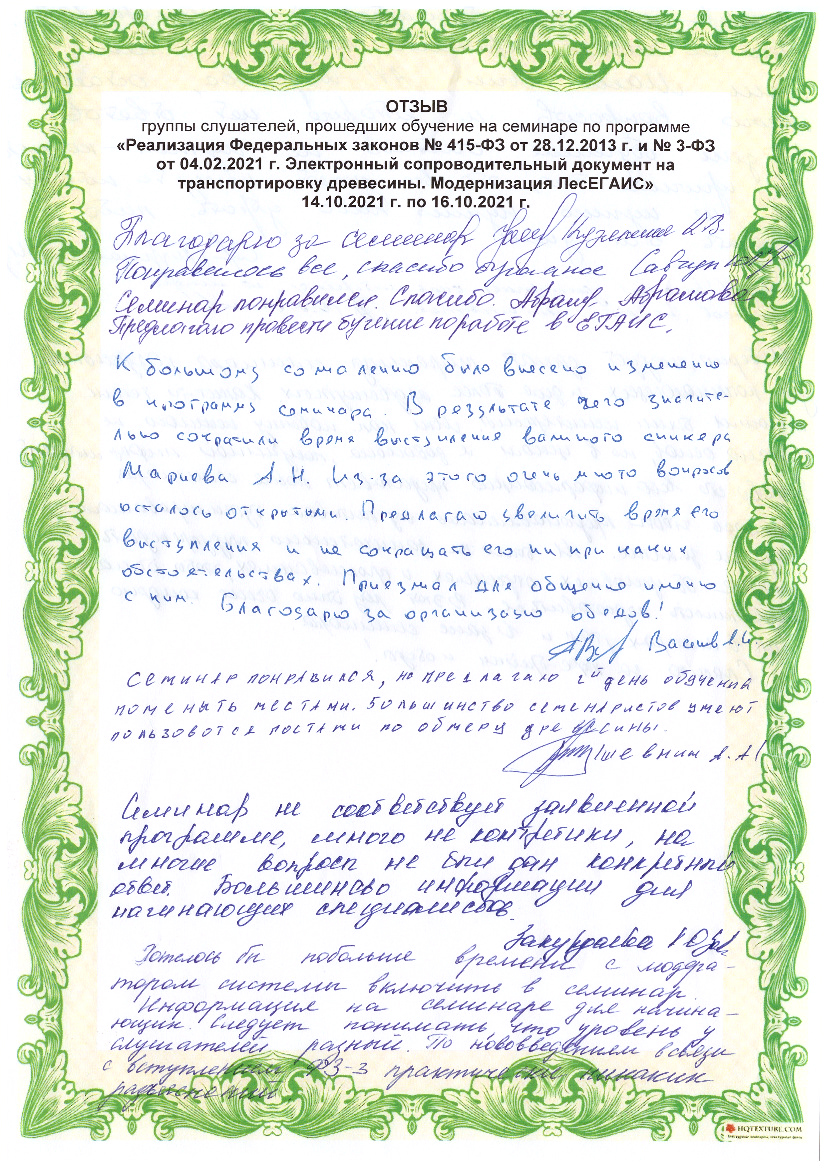 ОТЗЫВ
группы слушателей, прошедших обучение на семинаре по программе
«Реализация Федеральных законов № 415-ФЗ от 28.12.2013 г. и № 3-ФЗ
от 04.02.2021 г. Электронный сопроводительный документ на
транспортировку древесины. Модернизация ЛесЕГАИС»
14.10.2021 г. по 16.10.2021 г.
Благодарю за семинар
Понравилось все, спасибо огромное
Семинар понравился. Спасибо. Абрамова
Предлагаю провести бучение по работе в ЕГАИС.
К большому сожалению было внесено изменение
в программу семинара. В результате чего значите-
льно сократили время выступления важного спикера
Мариева А.Н. Из-за этого очень много вопросов
осталось открытыми. Предлагаю увеличить время его
выступления и не сокращать его ни при каких
обстоятельствах. Приезжал для общения именно
с ним. Благодарю за организацию обедов!
Семинар понравился, но предлагаю 2й день обучения
поменять местами. Большинство семенаристов умеют
пользовотся постами по обмеру древесины.
Шевнин А.А
Семинар не соответствует заявленной
программе, много не конкретики, на
многие вопросы не был дан конкретный
ответ. Большинсво информации для
начинающих специалистов.
Хотелось бы побольше времени с модера-
тором системы включить в семинар.
Информация на семинаре для начина-
ющих. Следует понимать, что уровень у
слушателей разный. По нововведениям в связи
с вступлением ФЗ-3 практически никаких
разъяснений.
HQTEXTURE.COM